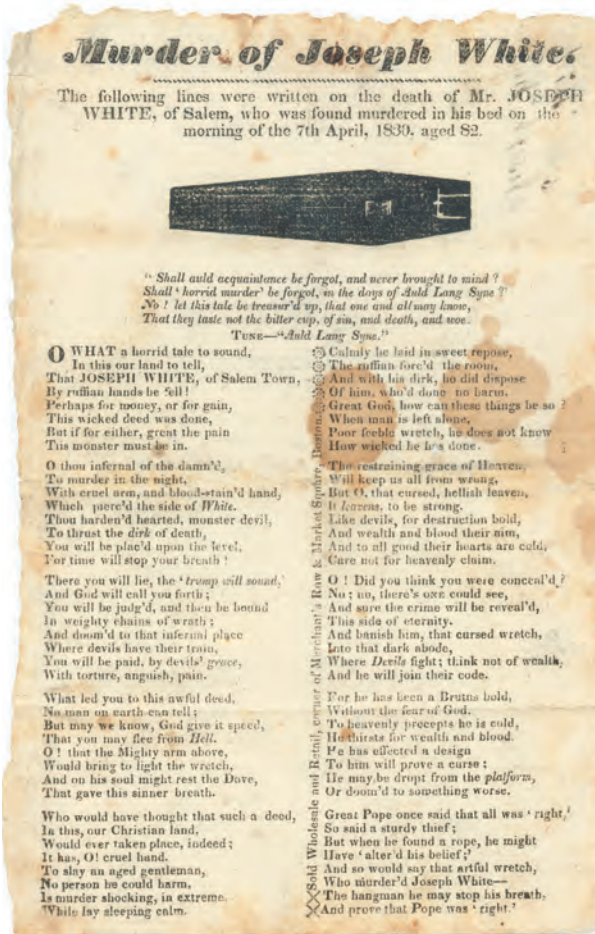 Murder of Joseph White.
The following lines were written on the death of Mr. JOSEPH
WHITE, of Salem, who was found murdered in his bed on the
morning of the 7th April, 1830, aged 82.
" Shall auld acquaintance be forgot, and never brought to mind ?
Shall ' horrid murder' be forgot, in the days of Auld Lang Syne ?'
No ! let this tale be treasur'd up, that one and all may know,
That they taste not the bitter cup, of sin, and death, and woe.
TUNE—"Auld Lang Syne."
O WHAT a horrid tale to sound,
In this our land to tell,
That JOSEPH WHITE, of Salem Town,
By ruffian hands he fell !
Perhaps for money, or for gain,
This wicked deed was done,
But if for either, great the pain
This monster must be in.
O thou infernal of the damn'd,
To murder in the night,
With cruel arm, and blood-stain'd hand,
Which pierc'd the side of White.
Thou harden'd hearted, monster devil,
To thrust the dirk of death,
You will be plac'd upon the level,
For time will stop your breath !
There you will lie, the 'trump will sound,'
And God will call you forth ;
You will be judg'd, and then be bound
In weighty chains of wrath ;
And doom'd to that infernal place
Where devils have their train,
You will be paid, by devils' grace,
With torture, anguish, pain.
What led you to this awful deed,
No man on earth can tell ;
But may we know, God give it speed,
That you may flee from Hell.
O ! that the Mighty arm above,
Would bring to light the wretch,
And on his soul might rest the Dove,
That gave this sinner breath.
Who would have thought that such a deed,
In this, our Christian land,
Would ever taken place, indeed ;
It has, O! cruel hand.
To slay an aged gentleman,
No person he could harm,
Is murder shocking, in extreme.
While lay sleeping calm.
Sold Wholesale and Retail, corner of Merchant's Row & Market Square, Boston.
Calmly he laid in sweet repose,
The ruffian forc'd the room,
And with his dirk, he did dispose
Of him, who'd done no harm.
Great God, how can these things be so ?
When man is left alone,
Poor feeble wretch, he does not know
How wicked he has done.
The restraining grace of Heaven,
Will keep us all from wrong,
But O, that cursed, hellish leaven,
It leavens, to be strong.
Like devils, for destruction bold,
And wealth and blood their aim,
And to all good their hearts are cold,
Care not for heavenly claim.
O ! Did you think you were conceal'd ?
No ; no, there's one could see,
And sure the crime will be reveal'd,
This side of eternity.
And banish him, that cursed wretch,
Into that dark abode,
Where Devils fight ; think not of wealth,
And he will join their code.
For he has been a Brutus bold,
Without the fear of God.
To heavenly precepts he is cold,
He thirsts for wealth and blood.
He has effected a design
To him will prove a curse ;
He may be dropt from the platform,
Or doom'd to something worse.
Great Pope once said that all was ' right,'
So said a sturdy thief ;
But when he found a rope, he might
Have ' alter'd his belief ;'
And so would say that artful wretch,
Who murder'd Joseph White—
The hangman he may stop his breath,
And prove that Pope was ' right.'